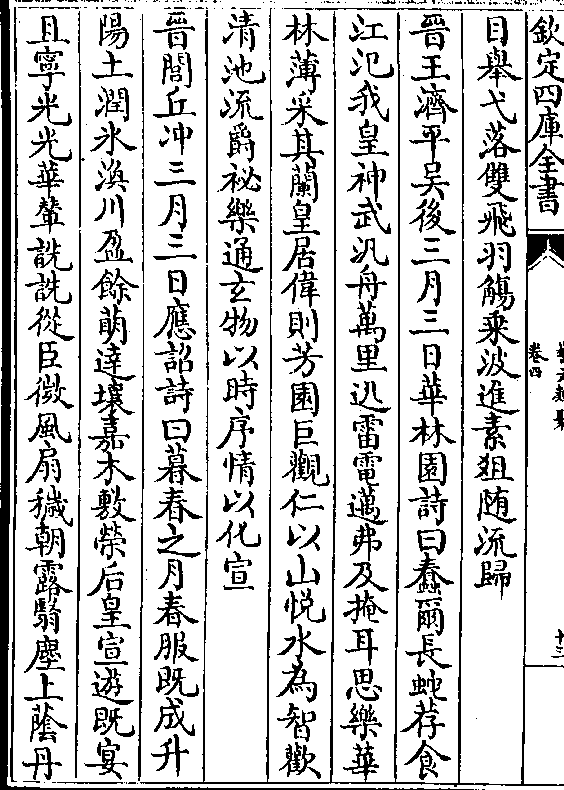 欽定四庫全書
卷四
十三
目舉弋落雙飛羽觴乘波進素俎随流歸
晉王濟平吳後三月三日華林園詩曰蠢爾長蛇荐食
江氾我皇神武汎舟萬里迅雷電邁弗及掩耳思樂華
林薄采其蘭皇居偉則芳園巨觀仁以山悅水為智歡
清池流爵祕樂通玄物以時序情以化宣
晉閭丘冲三月三日應詔詩曰暮春之月春服既成升
陽土潤氷渙川盈餘萌達壤嘉木敷榮后皇宣遊既宴
且寧光光華輦詵詵從臣微風扇穢朝露翳塵上蔭丹